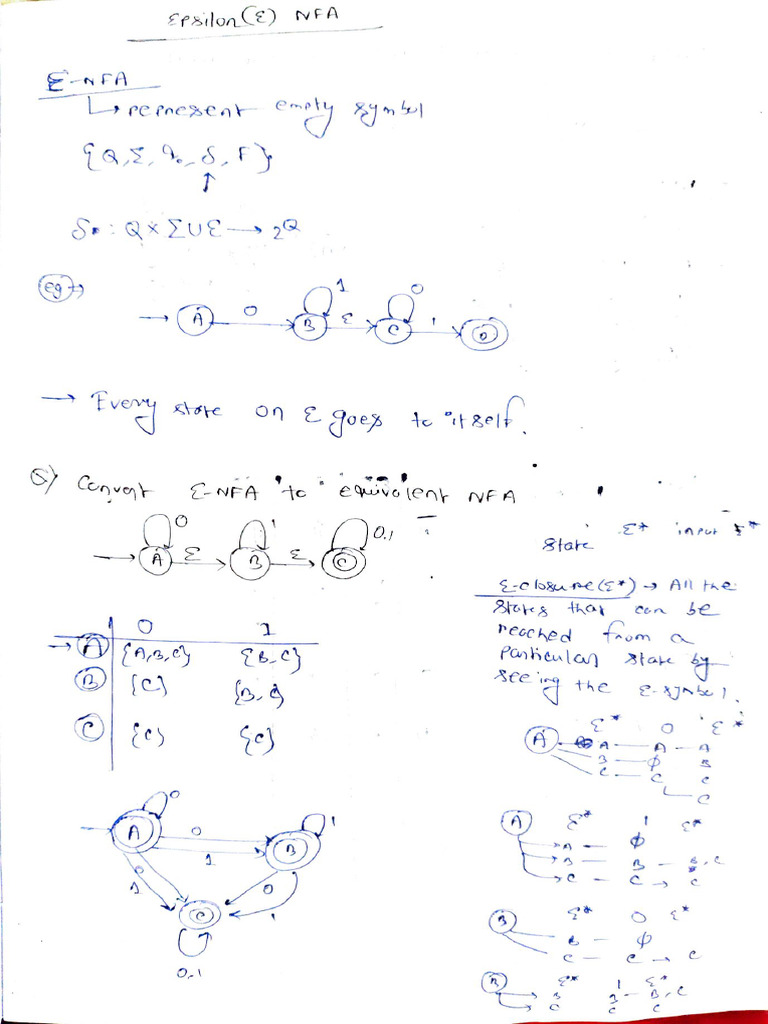 Epsilon(ε) NFA
ε-NFA
↳ represent empty symbol
{Q, Σ, q₀, δ, F}
↑
δ : Q × Σ ∪ ε → 2^Q
eg →
→ A 0 B 1 ε C 0 1 D
→ Every state on ε goes to itself.
Q) Convert ε-NFA to equivalent NFA
→ A 0 ε B 1 ε C 0,1
0 1
→ A {A,B,C} {B,C}
B {C} {B,C}
C {C} {C}
A 0 0 1 B 1
0 1 0 1
C
0,1
state ε* input ε*
ε-closure(ε*) → All the
states that can be
reached from a
particular state by
seeing the ε-symbol.
ε* 0 ε*
A A — A — A
B — ϕ B
C — C C
C
A ε* 1 ε*
A — ϕ
B — B — B,C
C — C → C
B ε* 0 ε*
B — ϕ
C — C → C
B ε* 1 ε*
B B — B,C
C C C